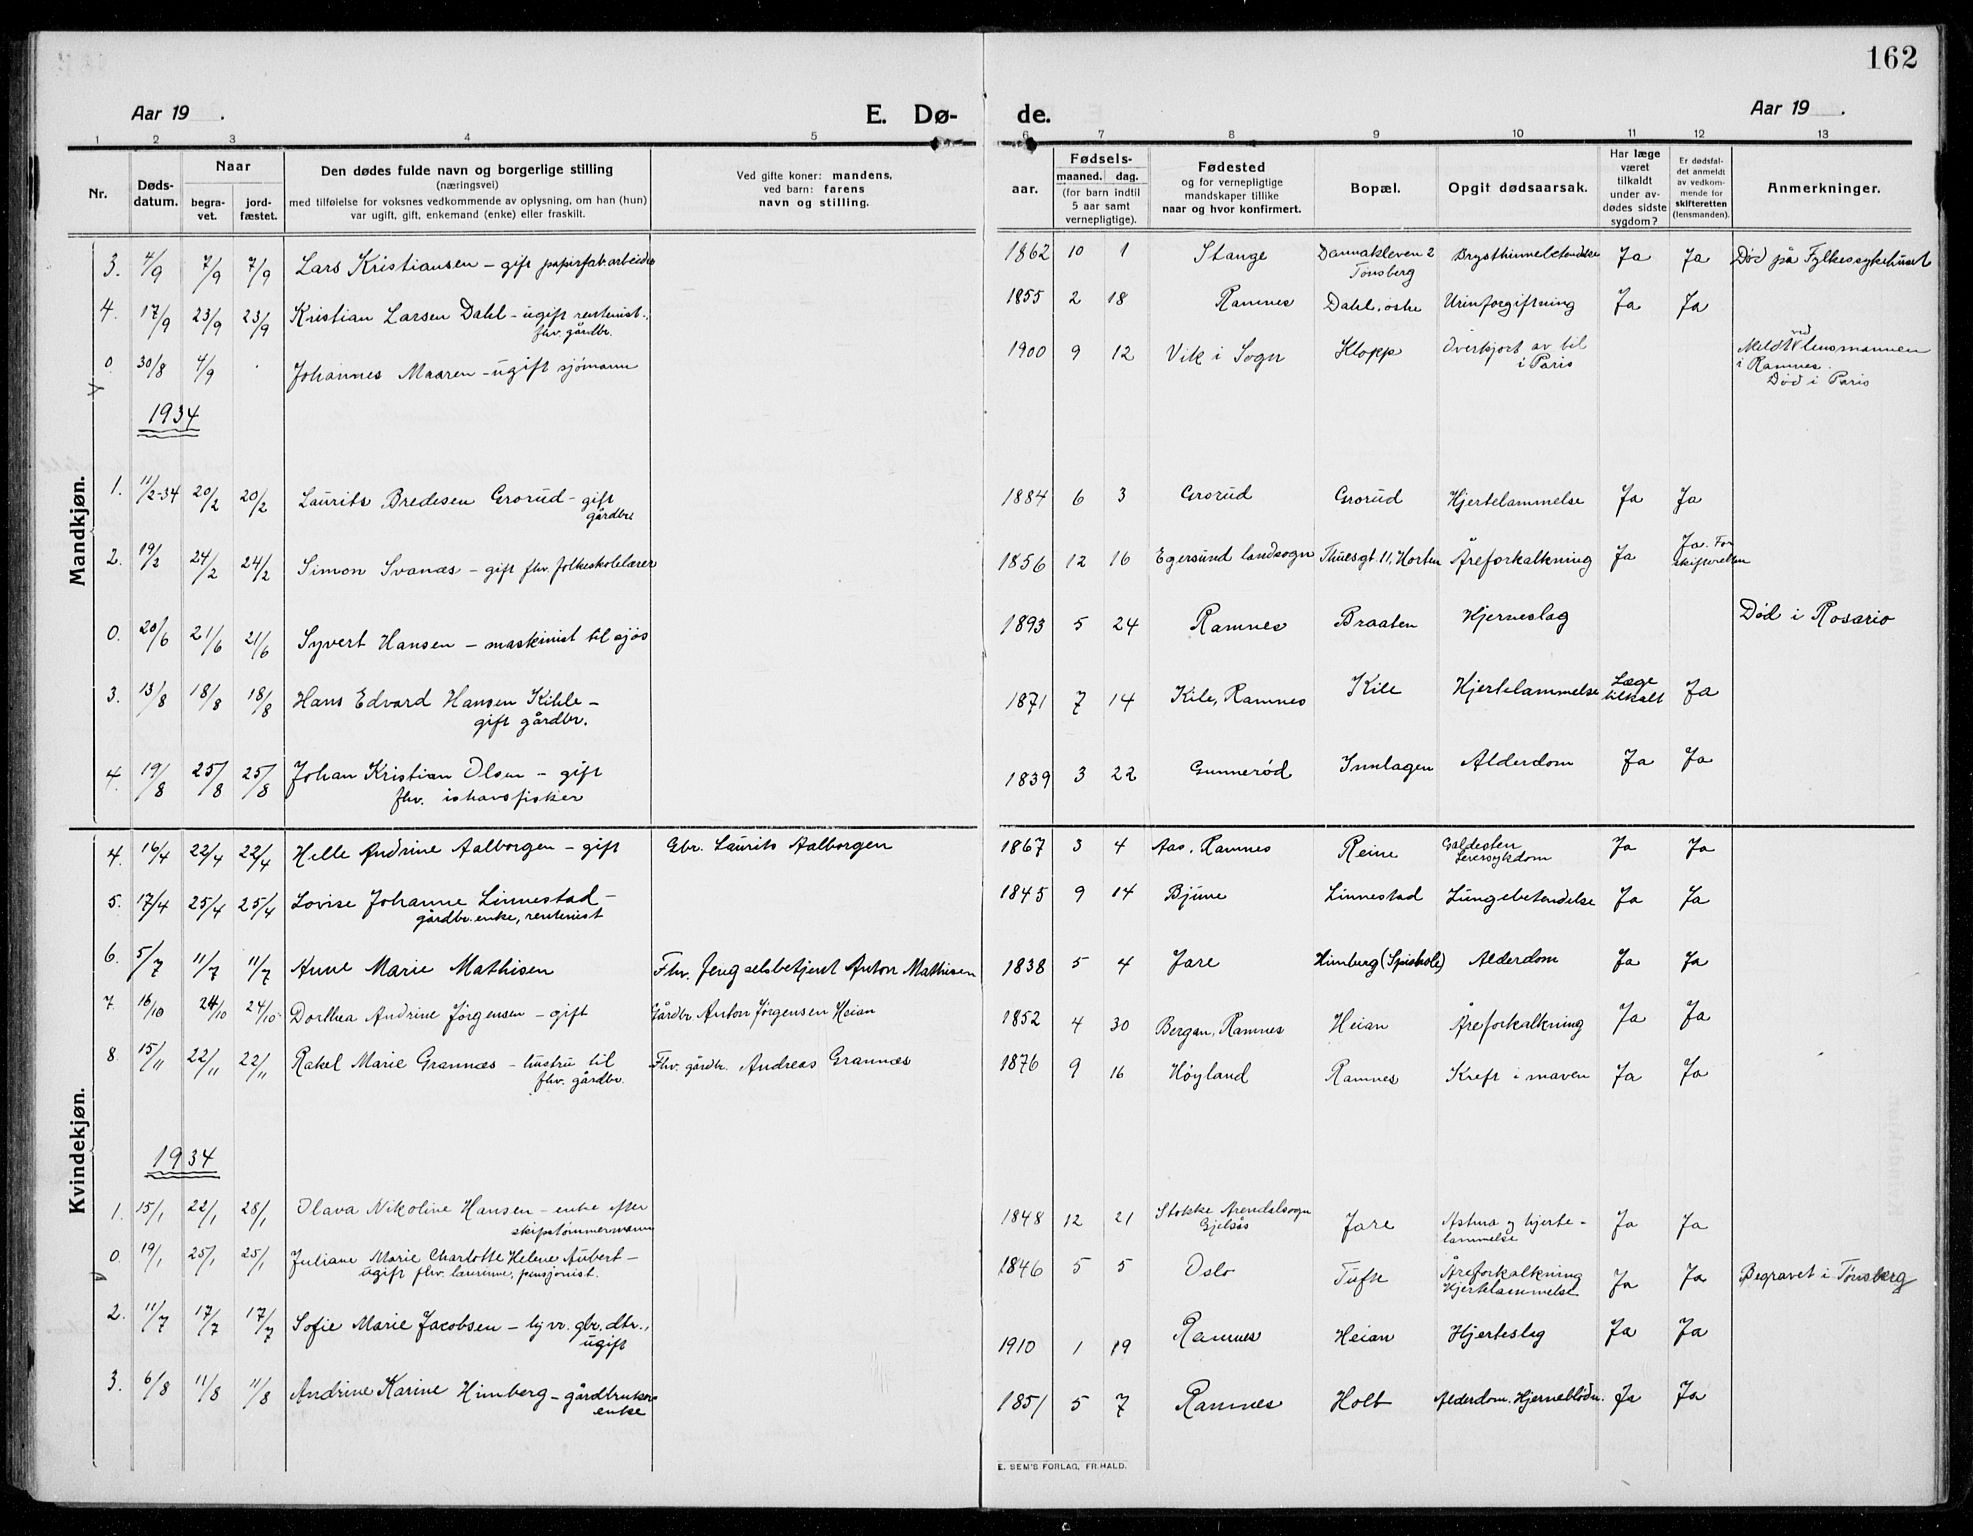 162
Aar 19 .
E. Dø-
de.
Aar 19 .
1 2 3 4 5 6 7 8 9 10 11 12 13
Nr.
Døds-
datum.
Naar
begra-
vet.
jord-
fæstet.
Den dødes fulde navn og borgerlige stilling
(næringsvei)
med tilføielse for voksnes vedkommende av oplysning, om han (hun)
var ugift, gift, enkemand (enke) eller fraskilt.
Ved gifte koner: mandens,
ved barn: farens
navn og stilling.
aar.
Fødsels-
maaned. dag.
(for barn indtil
5 aar samt
vernepligtige).
Fødested
og for vernepligtige
mandskaper tillike
naar og hvor konfirmert.
Bopæl.
Opgit dødsaarsak.
Har læge
været
tilkaldt
under av-
dødes sidste
sygdom?
Er dødsfal-
det anmeldt
av vedkom-
mende for
skifteretten
(lensmanden).
Anmerkninger.
Mandkjøn.
3. 4/9 7/9 7/9 Lars Kristiansen – gift papirfab.arbeider 1862 10 1 Stange Dannakleven 2 Tønsberg Brysthinnebetendelse Ja Ja Død på Fylkessykehuset
4. 17/9 23/9 23/9 Kristian Larsen Dahl – ugift rentenist., fhv. gårdbr. 1855 2 18 Ramnes Dahl, østre Urinforgiftning Ja Ja
0. 30/8 4/9 . Johannes Maaren – ugift sjømann 1900 9 12 Vik i Sogn Klopp Overkjørt av bil i Paris Meldt ved lensmannen i Ramnes. Død i Paris
1934
1. 11/2-34 20/2 20/2 Laurits Bredesen Grorud – gift gårdbr. 1884 6 3 Grorud Grorud Hjertelammelse Ja Ja
2. 19/2 24/2 24/2 Simon Svanæs – gift fhv. folkeskolelærer 1856 12 16 Egersund landsogn Thuesgt. 11, Horten Åreforkalkning Ja Ja. For skifteretten
0. 20/6 21/6 21/6 Syvert Hansen – maskinist til sjøs 1893 5 24 Ramnes Braaten Hjerneslag Død i Rosario
3. 13/8 18/8 18/8 Hans Edvard Hansen Kihle – gift gårdbr. 1871 7 14 Kile, Ramnes Kile Hjertelammelse Læge tilkalt Ja
4. 19/8 25/8 25/8 Johan Kristian Olsen – gift fhv. ishavsfisker 1839 3 22 Gunnerød Innlagen Alderdom Ja Ja
Kvindekjøn.
4. 16/4 22/4 22/4 Helle Andrine Aalborgen – gift Gbr. Laurits Aalborgen 1867 3 4 Aas, Ramnes Reine Galdesten Leversykdom Ja Ja
5. 17/4 25/4 25/4 Lovise Johanne Linnestad – gårdbr. enke, rentenist 1845 9 14 Bjune Linnestad Lungebetendelse Ja Ja
6. 5/7 11/7 11/7 Anne Marie Mathisen Fhv. fengselsbetjent Anton Mathisen 1838 5 4 Jare Himberg Alderdom Ja Ja
7. 16/10 24/10 24/10 Dorthea Andrine Jørgensen – gift Gårdbr. Anton Jørgensen Heian 1852 4 30 Bergan, Ramnes Heian Åreforkalkning Ja Ja
8. 15/11 22/11 22/11 Rakel Marie Grannæs – hustru til fhv. gårdbr. Fhv. gårdbr. Andreas Grannæs 1876 9 16 Høyland Ramnes Kreft i maven Ja Ja
1934
1. 15/1 22/1 28/1 Olava Nikoline Hansen – enke efter skipstømmermann 1848 12 21 Stokke Arendalsogn Jare Astma og hjertelammelse Ja Ja
0. 19/1 25/1 25/1 Juliane Marie Charlotte Helene Aubert – ugift fhv. lærerinne, pensjonist. 1846 5 5 Oslo Tufte Åreforkalkning Hjertelammelse Ja Ja Begravet i Tønsberg
2. 11/7 17/7 17/7 Sofie Marie Jacobsen – hjvr. gbr. dtr., ugift 1910 1 19 Ramnes Heian Hjerteslag Ja Ja
3. 6/8 11/8 11/8 Andrine Karine Himberg – gårdbruker enke 1851 5 7 Ramnes Holt Alderdom. Hjerneblødn. Ja Ja
E. SEM'S FORLAG, FR.HALD.